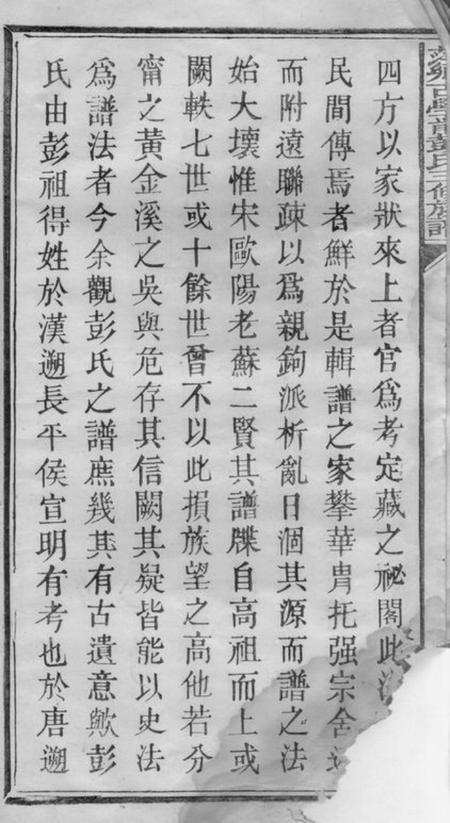 彭氏三修族譜
四方以家狀來上者官爲考定藏之祕閣此
民間傳焉者鮮於是輯譜之家攀華胄托强宗舍
而附遠聯疎以爲親鉤派析亂日涸其源而譜之法
始大壞惟宋歐陽老蘇二賢其譜牒自高祖而上或
闕軼七世或十餘世曾不以此損族望之高他若分
甯之黃金溪之吳與危存其信闕其疑皆能以史法
爲譜法者今余觀彭氏之譜庶幾其有古遺意歟彭
氏由彭祖得姓於漢遡長平侯宣明有考也於唐遡